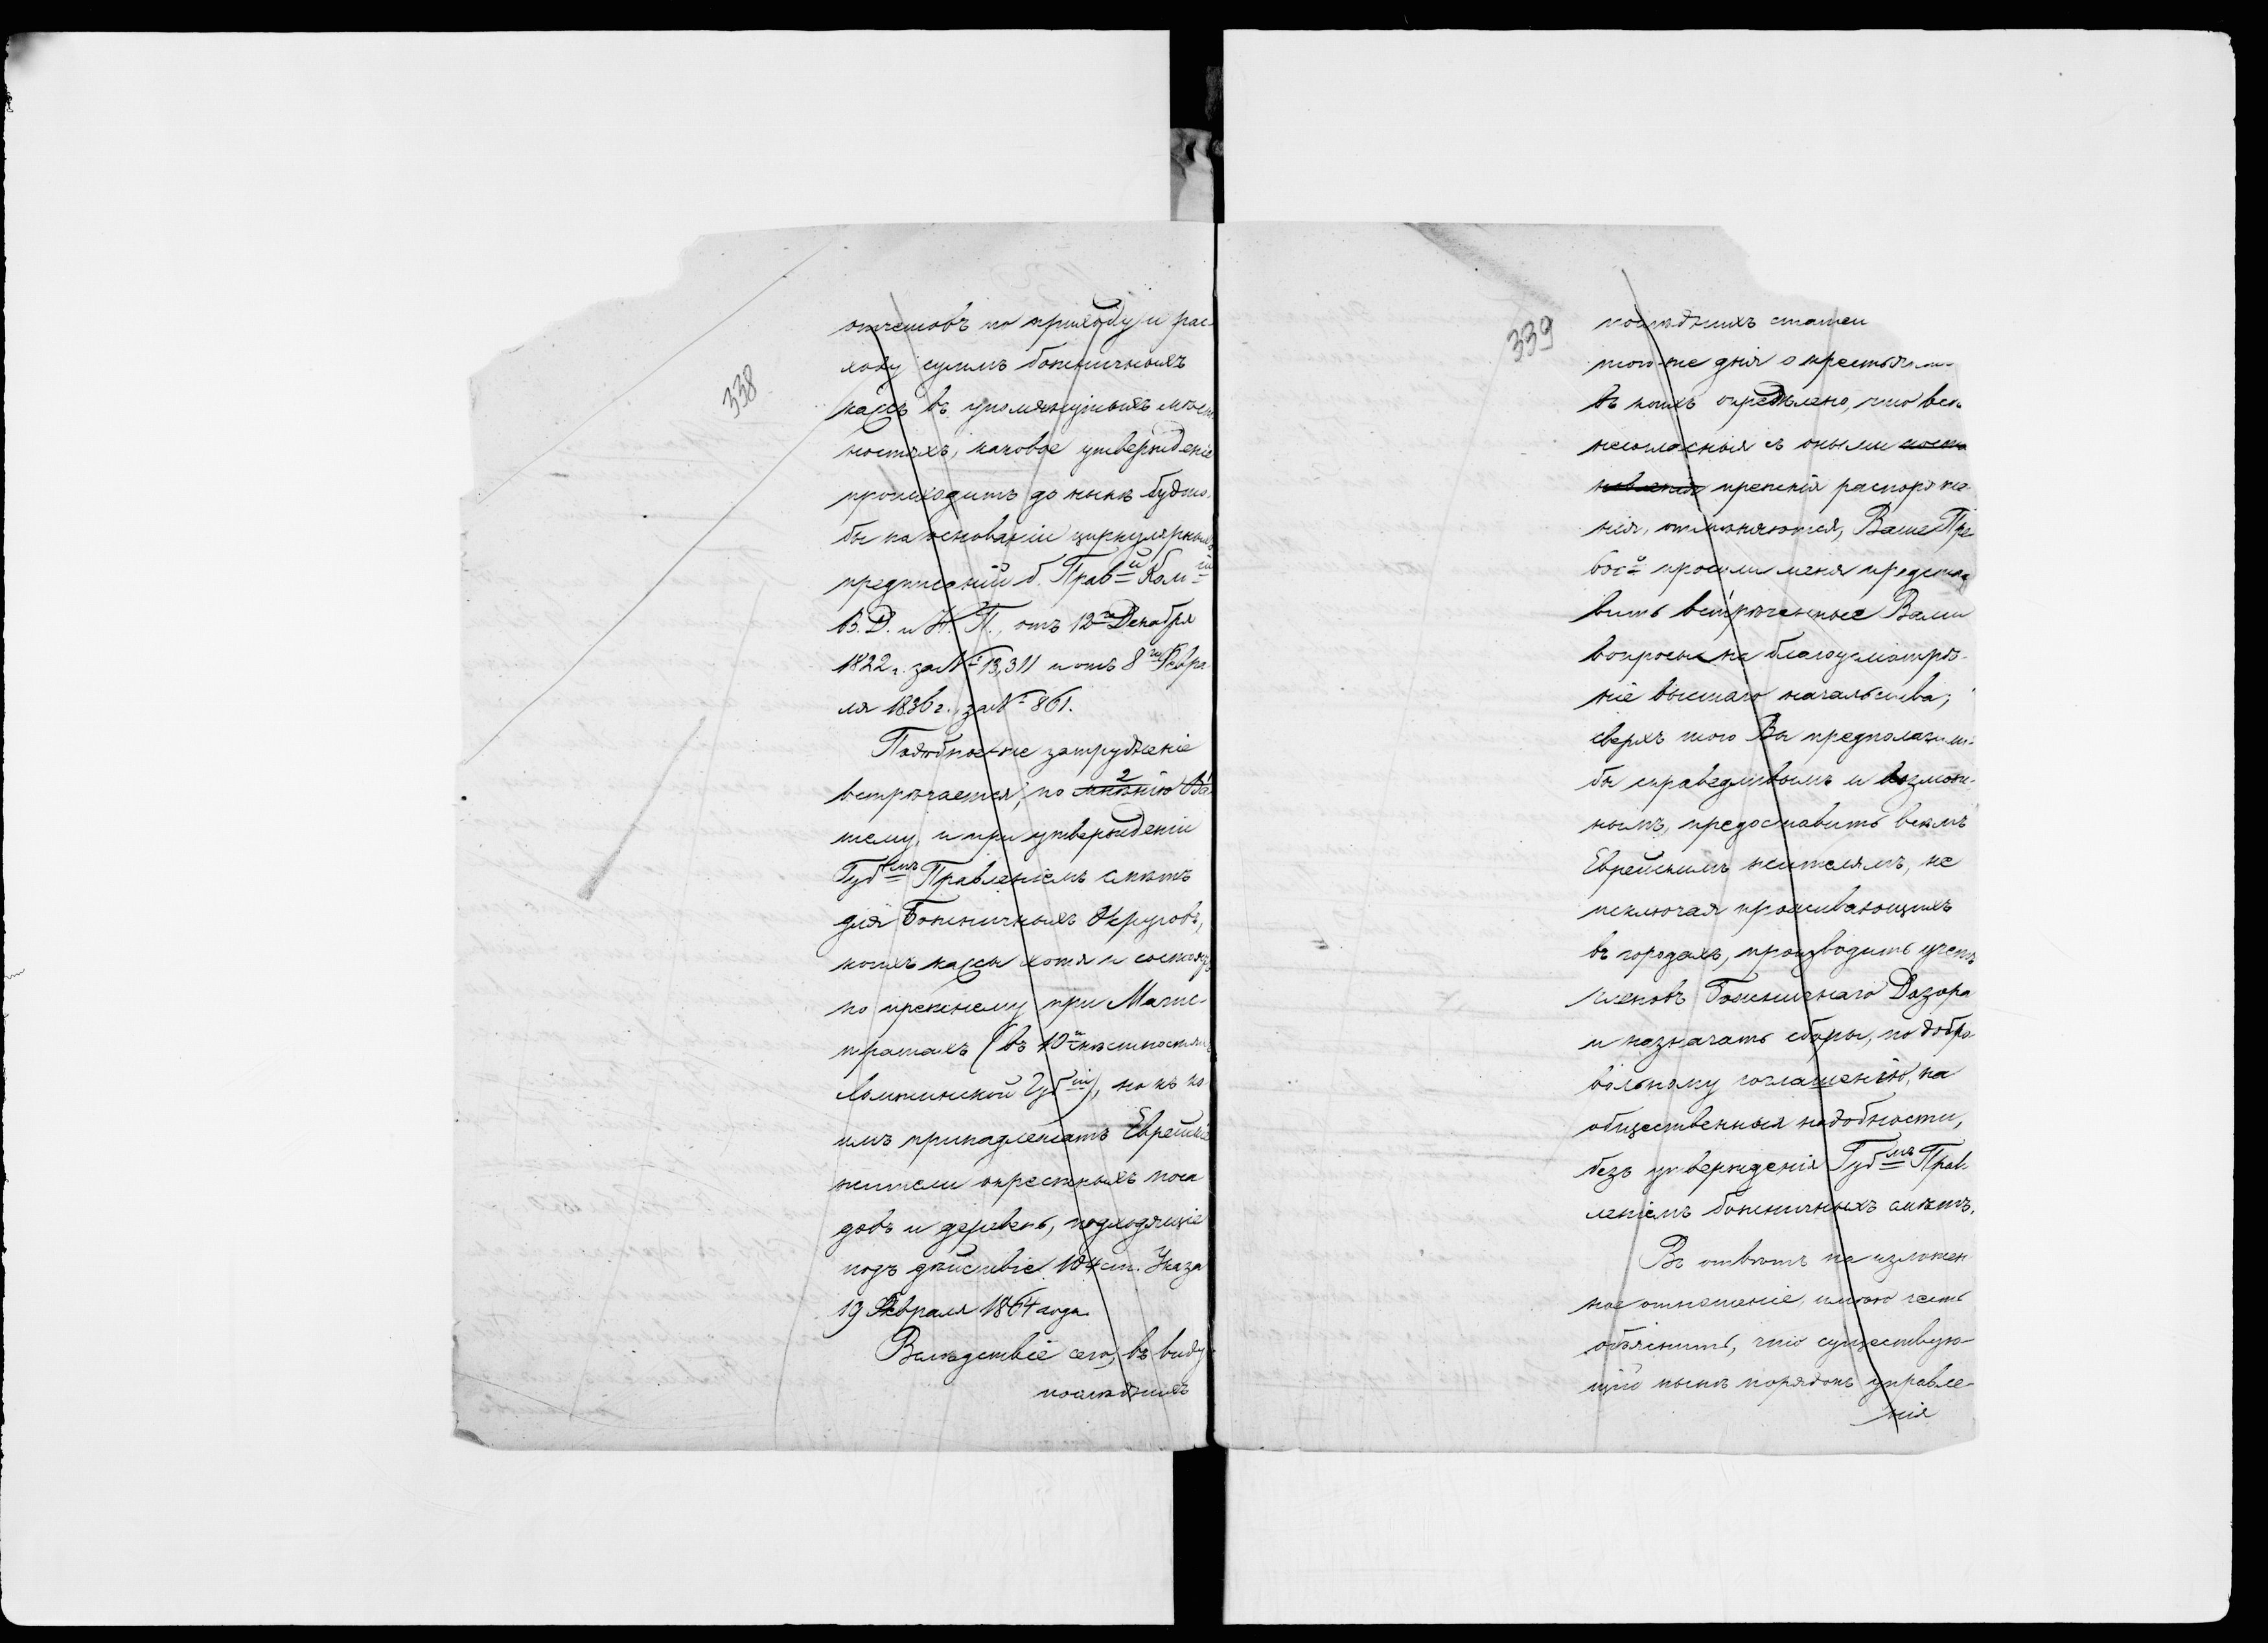 338
отчетовъ по приходу и рас-
ходу суммъ божничныхъ
кассъ въ упомянутыхъ мѣст
ностяхъ, каковое утвержденіе
происходитъ до нынѣ будто-
бы на основаніи циркулярныхъ
предписаній б. Прав<sup>й</sup> Ком<sup>іи</sup>
В. Д. и Н. П., отъ 12<sup>го</sup> Декабря
1822 г. за № 13,311 и отъ 8<sup>го</sup> Февра
ля 1836 г. за № 861.
Подобное-же затрудненіе
встрѣчается, по мнѣнію Ва-
шему, и при утвержденіи
Губ<sup>емъ</sup> Правленіемъ смѣтъ
для Божничныхъ Округовъ,
коихъ кассы хотя и состоятъ
по прежнему при Магис-
тратахъ (въ 10<sup>и</sup> мѣстностяхъ
Ломжинской Губ<sup>іи</sup>), но къ ко
имъ принадлежатъ Еврейскіе
жители окрестныхъ поса
довъ и деревень, подходящіе
подъ дѣйствіе 104 ст. Указа
19 Февраля 1864 года.
Вслѣдствіе сего, въ виду
послѣднихъ
339
послѣднихъ статей
того-же дня о крестьян
въ коихъ опредѣлено, что всѣ
несогласныя съ оными поста
новленія прежнія распоряже-
нія, отмѣняются, Ваше Пре
вос<sup>о</sup> просили меня предста
вить встрѣченные Вами
вопросы на благоусмотрѣ-
ніе высшаго начальства;
сверхъ того Вы предполагали-
бы справедливымъ и возмож-
нымъ, предоставить всѣмъ
Еврейскимъ жителямъ, не
исключая проживающихъ
въ городахъ, производить учетъ
членовъ Божничнаго Дозора
и назначать сборы, по добро
вольному соглашенію, на
общественныя надобности,
безъ утвержденія Губ<sup>мъ</sup> Прав-
леніемъ божничныхъ смѣтъ.
Въ отвѣтъ на изложен
ное отношеніе, имѣю честь
объяснить, что существую-
щій нынѣ порядокъ управле-
нія